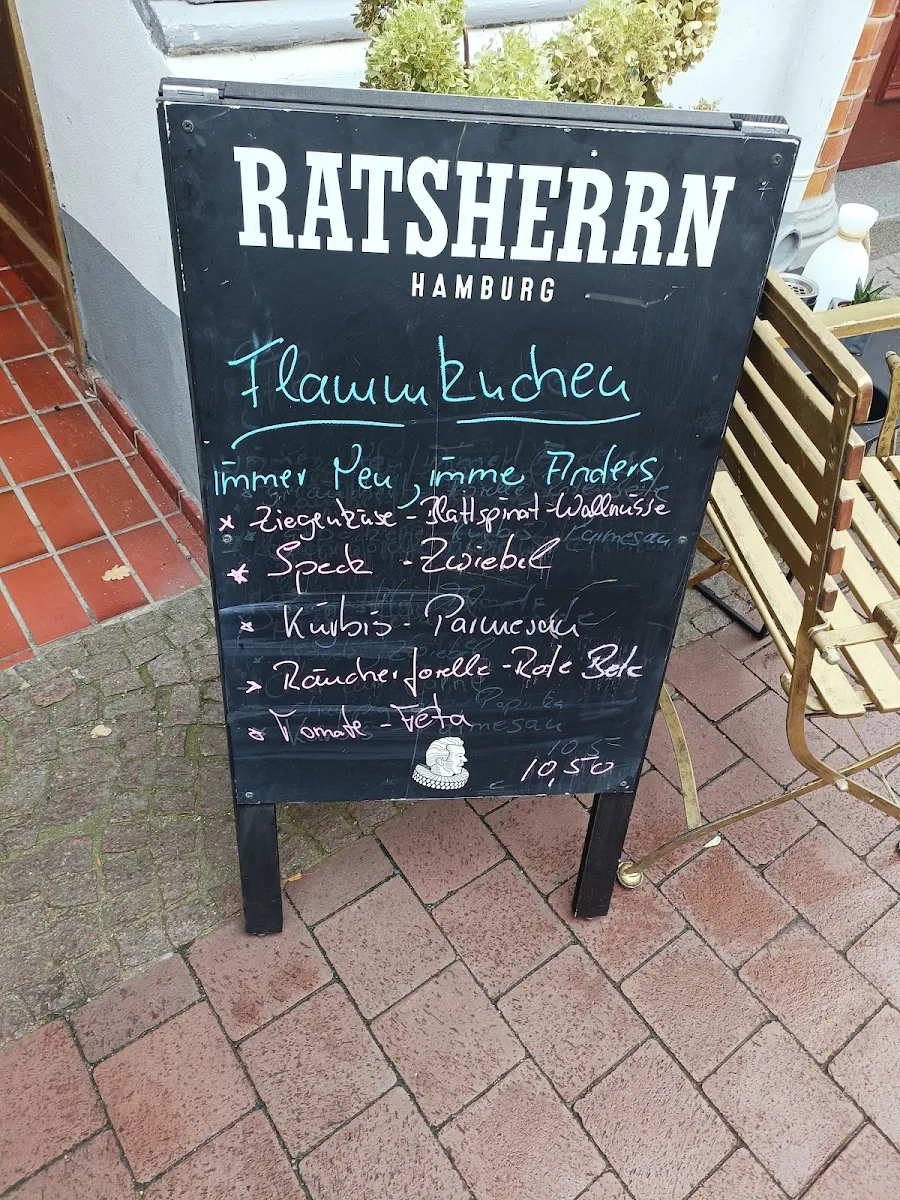 RATSHERRN
HAMBURG
Flammkuchen
immer Neu, imme Anders
x Ziegenkäse - Blattspinat - Wallnüsse
x Speck - Zwiebel
x Kürbis - Parmesan
x Räucherforelle - Rote Bete
x Tomate - Feta
10,50